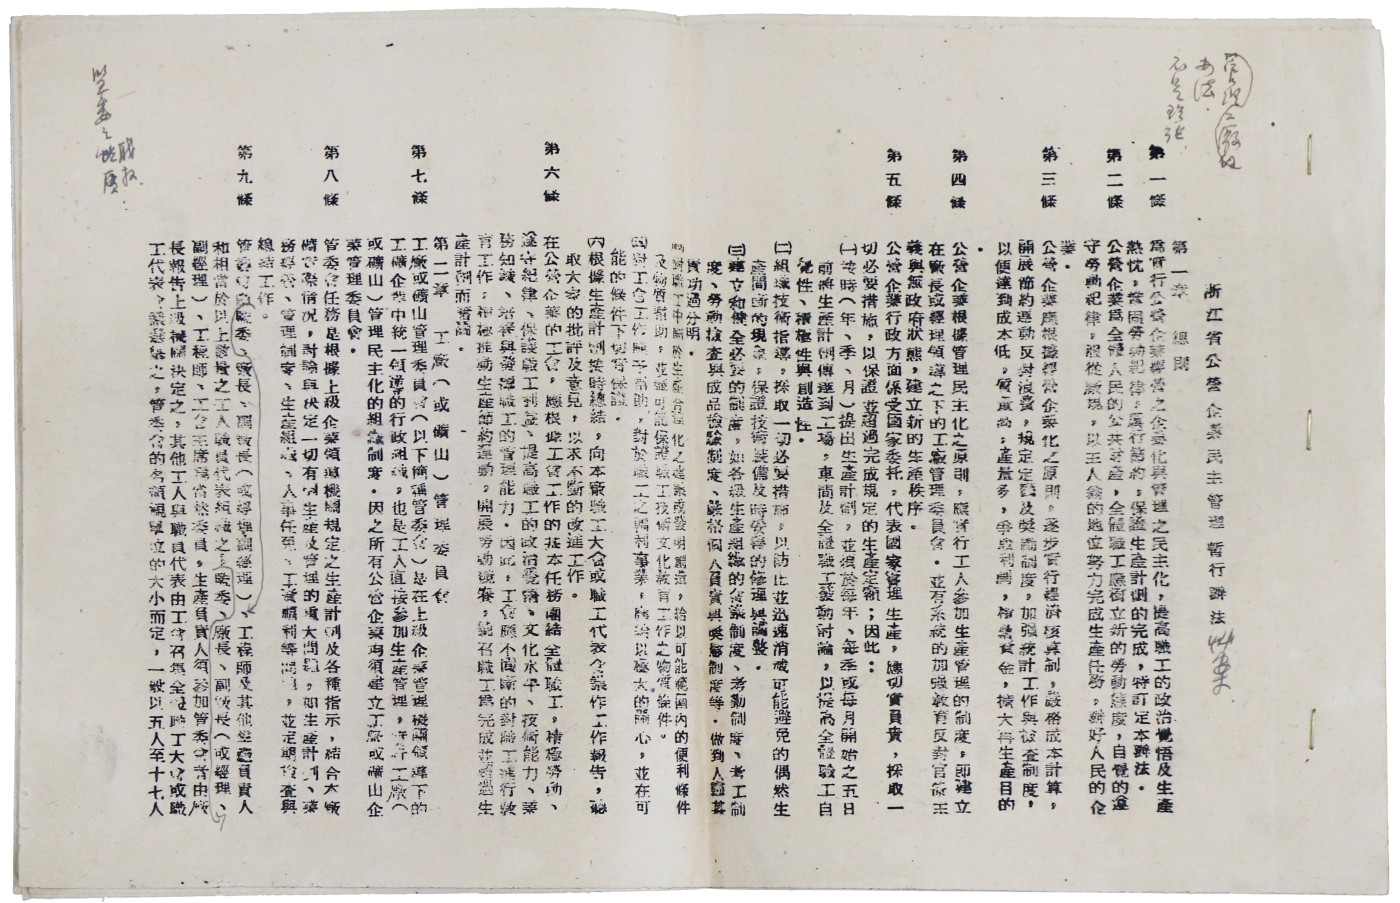 浙江省公營企業民主管理暫行辦法草案
第一章 總則
第一條 為實行公營企業經營之企業化與管理之民主化,提高職工的政治覺悟及生產
熱忱,鞏固勞動紀律,厲行節約,保證生產計劃的完成,特訂定本辦法。
第二條 公營企業為全體人民的公共財產,全體職工應樹立新的勞動態度,自覺的遵
守勞動紀律,服從廠規,以主人翁的地位努力完成生產任務,辦好人民的企
業。
第三條 公營企業應根據經營企業化之原則,逐步實行經濟核算制,嚴格成本計算,
開展節約運動反對浪費,規定定員及獎勵制度,加強統計工作與檢查制度,
以便達到成本低,質量高,產量多,爭取利潤,積累資金,擴大再生產目的
。
第四條 公營企業根據管理民主化之原則,應實行工人參加生產管理的制度,即建立
在廠長或經理領導之下的工廠管理委員會。並有系統的加強教育反對官僚主
義與無政府狀態,建立新的生產秩序。
第五條 公營企業行政方面係受國家委托,代表國家管理生產,應切實負責,採取一
切必要措施,以保證並超過完成規定的生產定額;因此:
㈠按時(年、季、月)提出生產計劃,並須於每年、每季或每月開始之五日
前將生產計劃傳達到工場,車間及全體職工發動討論,以提高全體職工自
覺性、積極性與創造性。
㈡組織技術指導,採取一切必要措施,以防止並迅速消滅可能避免的偶然生
產間斷的現象,保證技術裝備及時妥善的修理與調整。
㈢建立和健全必要的制度,如各級生產組織的會議制度、考勤制度、考工制
度、勞動檢查與成品檢驗制度、嚴格個人負責與獎懲制度等。做到人盡其
責功過分明。
㈣對職工中關於生產合理化之建議或發明創造,給以可能範圍內的便利條件
及物質幫助,並儘可能保證職工技術文化教育工作之物質條件。
㈤對工會工作應予幫助,對於職工之福利事業,應給以極大的關心,並在可
能的條件下切實保證。
㈥根據生產計劃按時總結,向本廠職工大會或職工代表會議作工作報告,聽
取大家的批評及意見,以求不斷的改進工作。
第六條 在公營企業的工會,應根據工會工作的基本任務團結全體職工,積極勞動、
遵守紀律、保護職工利益、提高職工的政治覺悟、文化水平、技術能力、業
務知識、培養與發揮職工的管理能力。因此,工會應不間斷的對職工進行教
育工作,積極推動生產節約運動,開展勞動競賽,號召職工為完成並超過生
產計劃而奮鬥。
第二章 工廠(或礦山)管理委員會
第七條 工廠或礦山管理委員會(以下簡稱管委會)是在上級企業管理機關領導下的
工礦企業中統一領導的行政組織,也是工人直接參加生產管理,實行工廠(
或礦山)管理民主化的組織制度。因之所有公營企業均須建立工廠或礦山企
業管理委員會。
第八條 管委會任務是根據上級企業領導機關規定之生產計劃及各種指示,結合本廠
實際情況,討論與決定一切有關生產及管理的重大問題,如生產計劃、業
務經營、管理制度、生產組織、人事任免、工資福利等問題,並定期檢查與
總結工作。
第九條 管委會由監委、廠長、副廠長(或經理副經理)、工程師及其他生產負責人
和相當於以上數量之工人職員代表組織之。監委、廠長、副廠長(或經理、
副經理)、工程師、工會主席為當然委員,生產負責人須參加管委會者由廠
長報告上級機關決定之,其他工人與職員代表由工會召集全體職工大會或職
工代表會議選舉之,管委會的名額視單位的大小而定,一般以五人至十七人
監委之
職权.